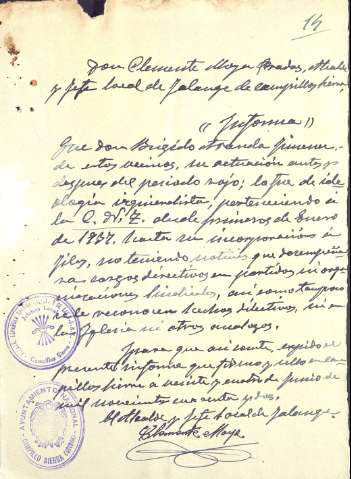 14
Don Clemente Moya Prados, Alcalde
y Jefe Local de Falange de Campillos Sierra
"Informa"
Que don Brígido Aranda Jimenez
de estos vecinos, su actuación antes y
despues del periodo rojo; la fue de ide
ología izquierdista, perteneciendo á
la C. N. T. desde primeros de Enero
de 1937. hasta su incorporación á
filas, no teniendo noticias que desempeña
ra cargos directivos en partidos ni orga
nizaciones Sindicales, así como tampoco
se le reconocen hechos delictivos, ni en
la Iglesia ni otros
Y para que así conste, expido el
presente informe que firmo y sello en Cam
pillos Sierra a veinte y cuatro de Junio de
mil novecientos cuarenta y dos.
El Alcalde y Jefe Local de Falange.
Clemente Moya
AYUNTAMIENTO NACIONAL
CAMPILLO SIERRA (CUENCA)